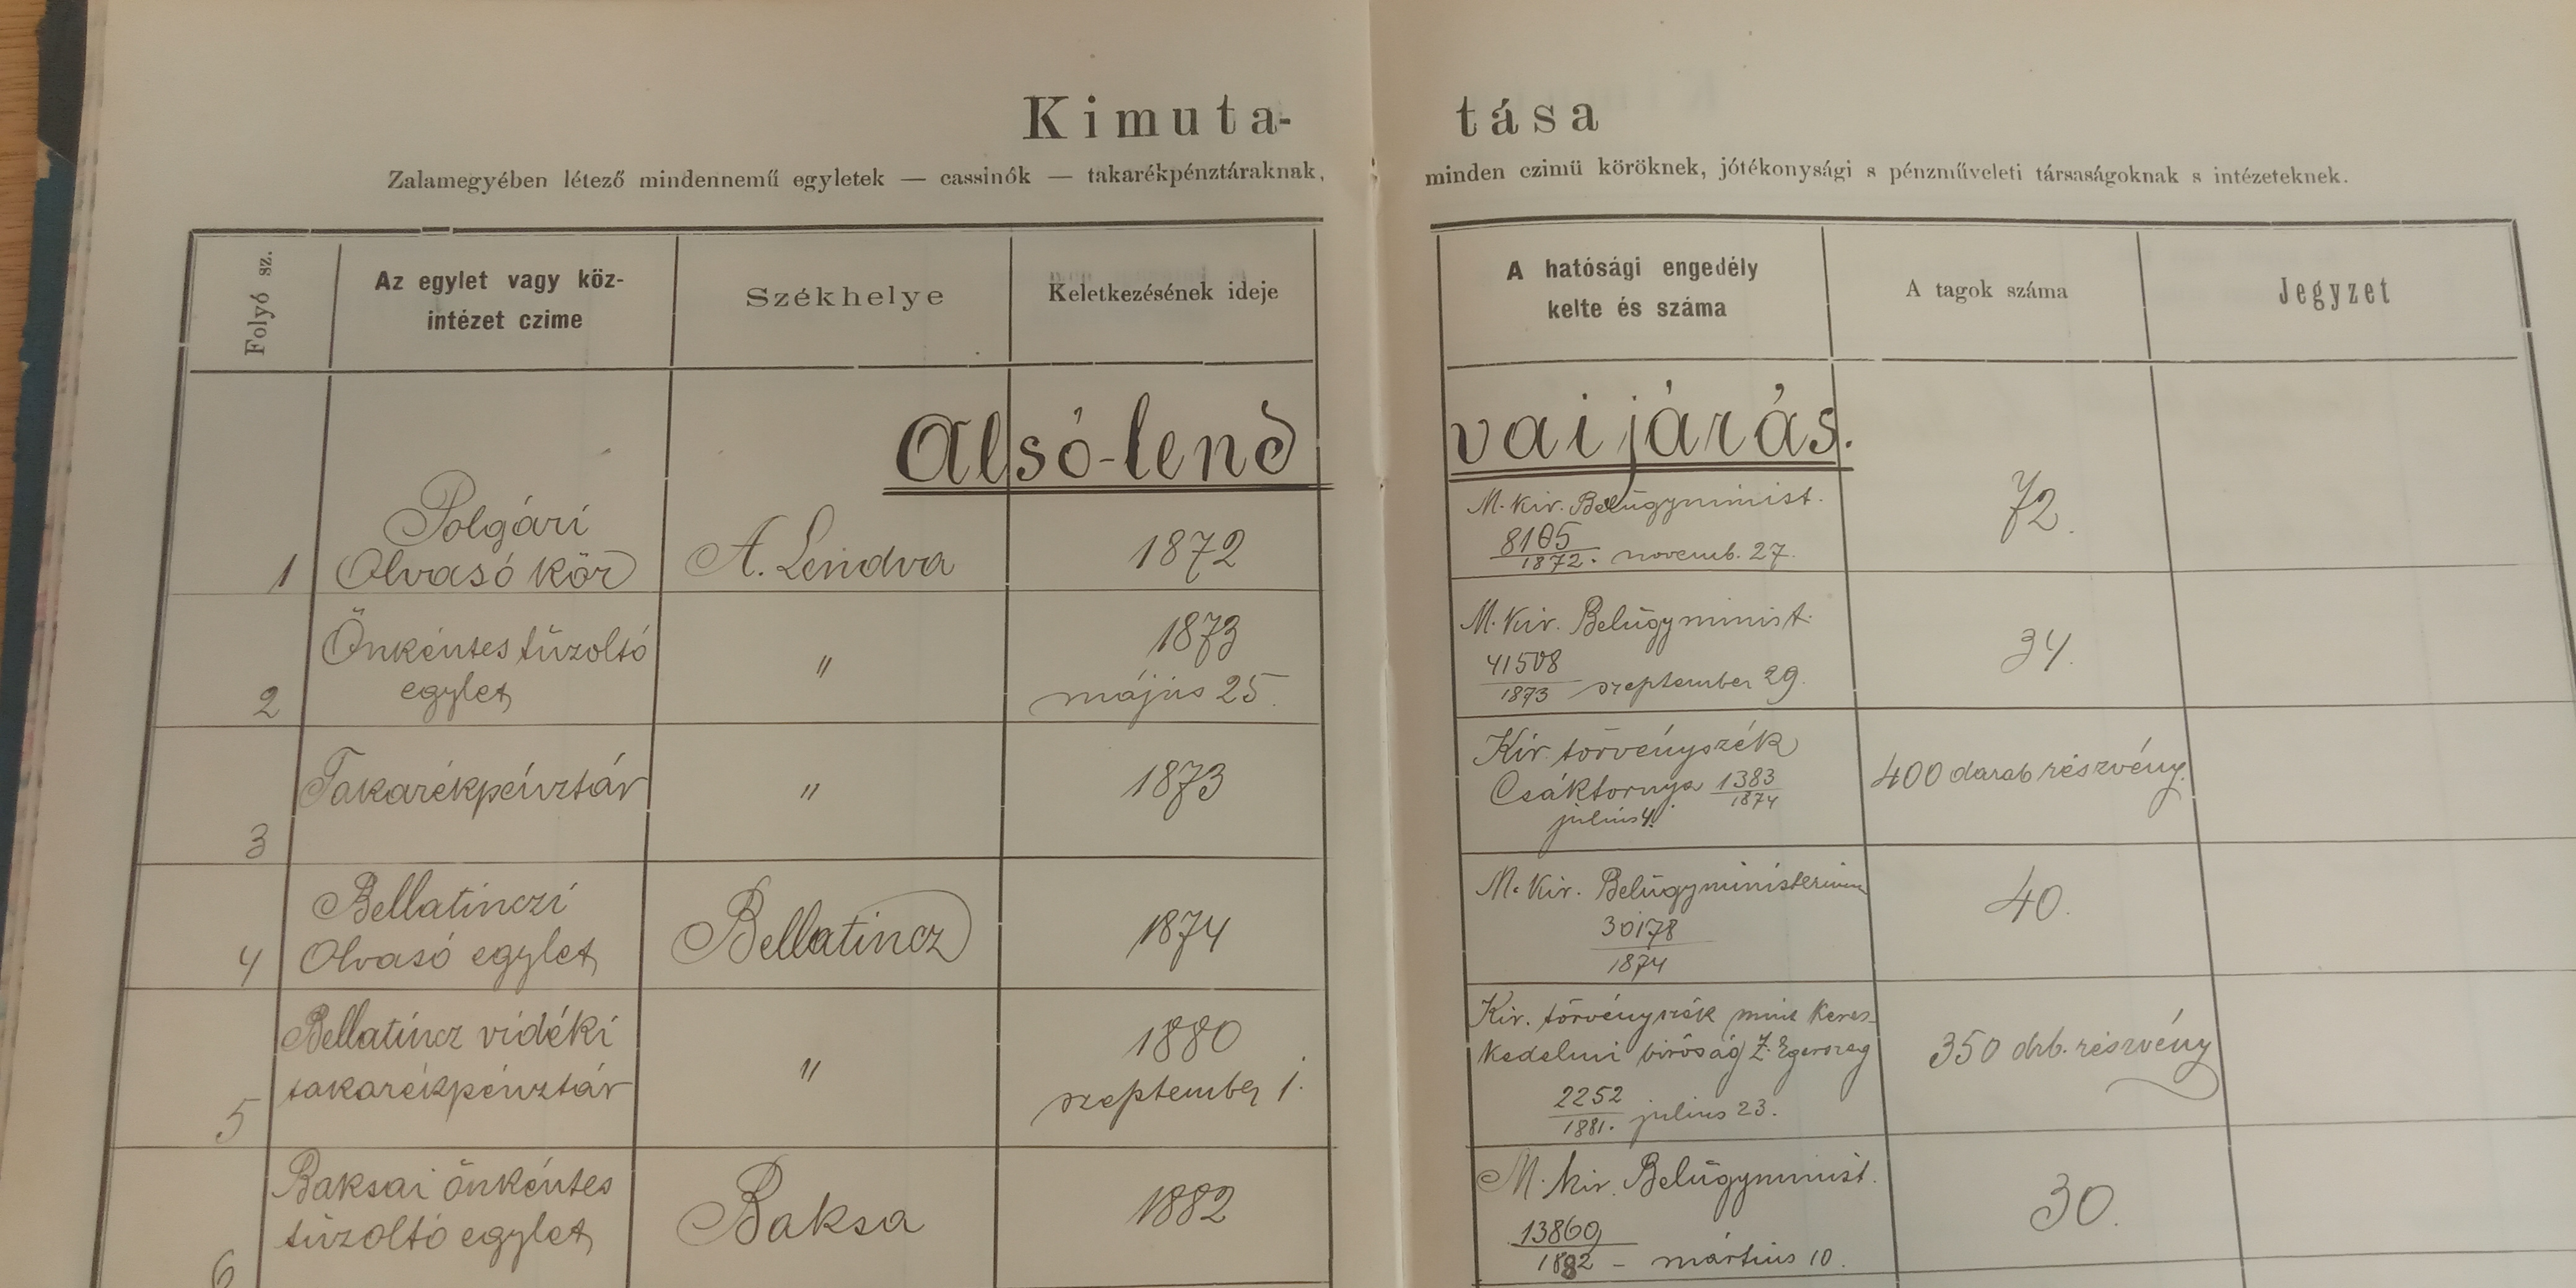 Kimuta-tása
Zalamegyében létező mindennemű egyletek — cassinók — takarékpénztáraknak, minden czimü köröknek, jótékonysági s pénzműveleti társaságoknak s intézeteknek.
Folyó sz.
Az egylet vagy köz-
intézet czime
Székhelye
Keletkezésének ideje
A hatósági engedély
kelte és száma
A tagok száma
Jegyzet
Alsó-lendvai járás.
1
Polgári
Olvasó kör
A. Lendva
1872
M. kir. Belügyminist.
8105
1872. novemb. 27.
72.
2
Önkéntes tűzoltó
egylet
"
1873
május 25.
M. kir. Belügyminist.
41508
1873 szeptember 29.
34.
3
Takarékpénztár
"
1873
Kir. törvényszék
Csáktornya 1383
1874
július 4.
400 darab részvény.
4
Bellatinczi
Olvasó egylet
Bellatincz
1874
M. kir. Belügyministerium
30178
1874
40.
5
Bellatincz vidéki
takarékpénztár
"
1880
szeptember 1.
Kir. törvényszék mint keres-
kedelmi biróság Z. Egerszeg
2252
1881. július 23.
350 drb. részvény
6
Baksai önkéntes
tűzoltó egylet
Baksa
1882
M. kir. Belügyminist.
13860
1882 - március 10.
30.